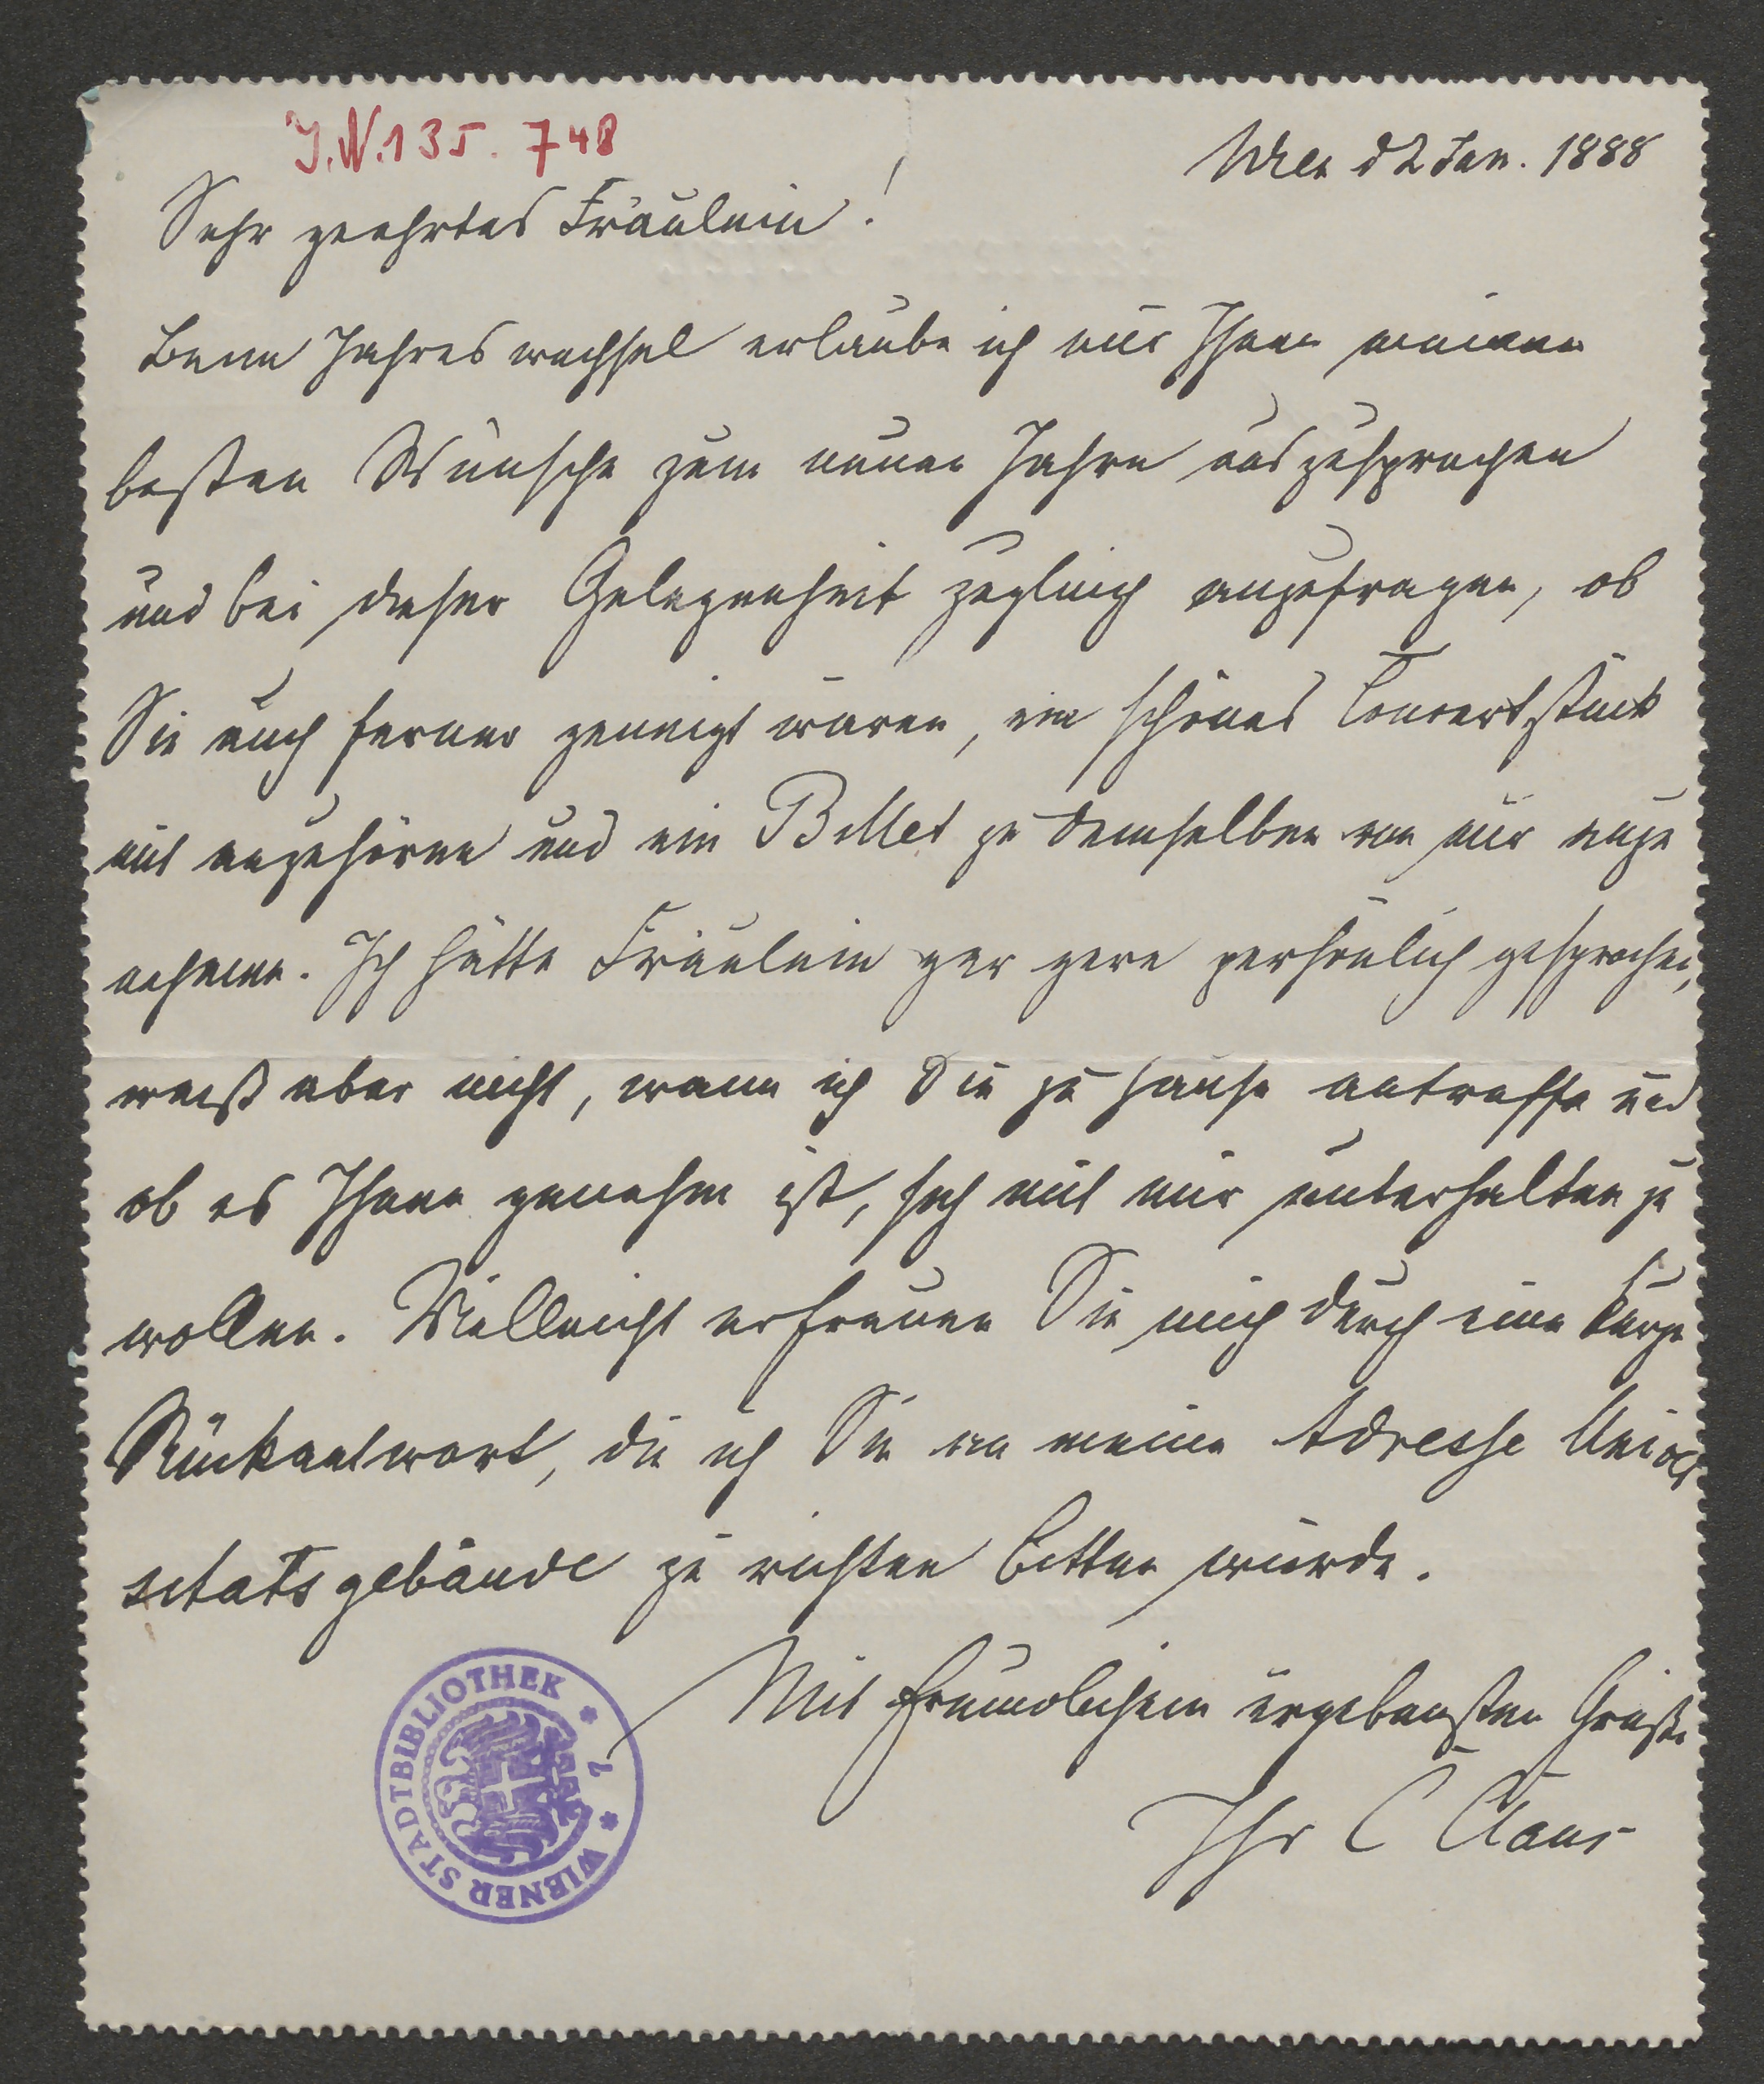 J.N. 135.748
Wien d 2 Jan. 1888
Sehr geehrtes Fräulein!
Beim Jahreswechsel erlaube ich mir Ihnen meinen
besten Wünsche zum neuen Jahre auszusprechen
und bei dieser Gelegenheit zugleich anzufragen, ob
Sie auch ferner geneigt wären, ein schönes Concertstück
mit anzuhören und ein Billet zu demselben von mir anzu
nehmen. Ich hätte Fräulein gar gern persönlich gesprochen,
weiß aber nicht, wann ich Sie zu Hause antreffe und
ob es Ihnen genehm ist, sich mit mir unterhalten zu
wollen. Vielleicht erfreuen Sie mich durch eine kurze
Rückantwort, die ich Sie an meine Adresse Univer
sitätsgebäude zu richten bitten würde.
Mit freundlichem ergebensten Gruße
Ihr C Claus
WIENER STADTBIBLIOTHEK * 7 *